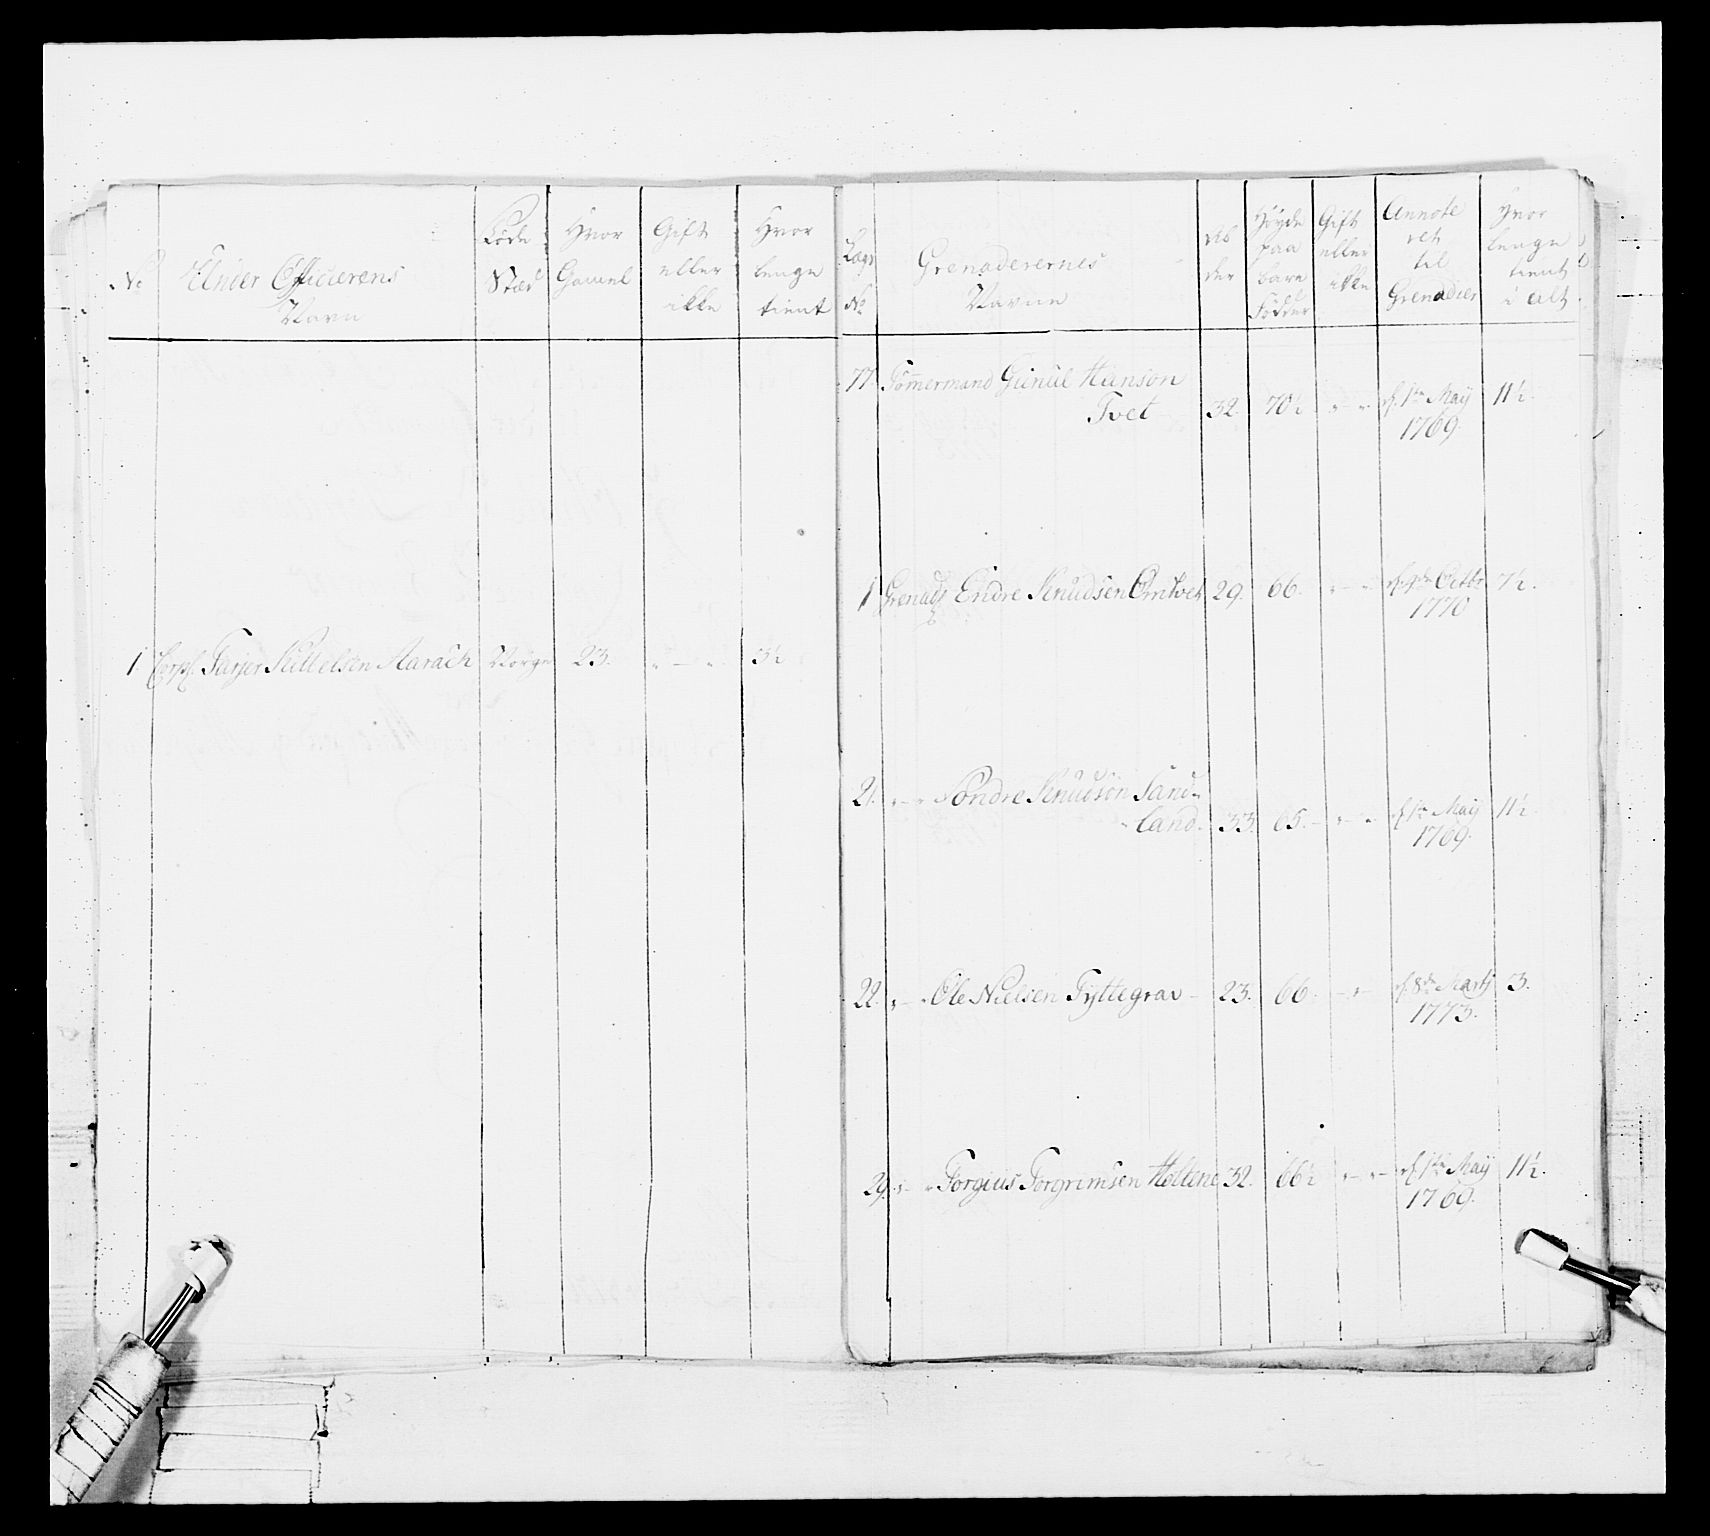 No
Under Officierens
Navn
Føde
Stæd
Hvor
Gamel
Gift
eller
ikke
Hvor
lenge
tient
1 Corpl. Tarjer Kittelsen Aarach Norge 23. „ — „ 3½
Lægs
No
Grenaderernes
Navne
Al
der
Høyde
paa
bare
Fødder
Gift
eller
ikke
Annote
ret
til
Grenadier
Hvor
lenge
tient
i alt
77. Tømmermand Gunul Hanson
Tvet 32. 70½ „ — „ d. 1te Maij 11½.
1769.
1 Grenad: Endre Knudsen Omtvet 29. 66. „ — „ 8br 7½.
1770
21. „ — „ Søndre Knudson Sand-
land. 33. 65. „ — „ d. 1te Maij 11½.
1769.
22. „ — „ Ole Nielsen Tyttegrav — 23. 66. — „ — d. 8de Martj 3.
1773.
29. „ — „ Torgius Torgrimsen Holtene 32. 66½ „ — „ d. 1te Maij 11½.
1769.